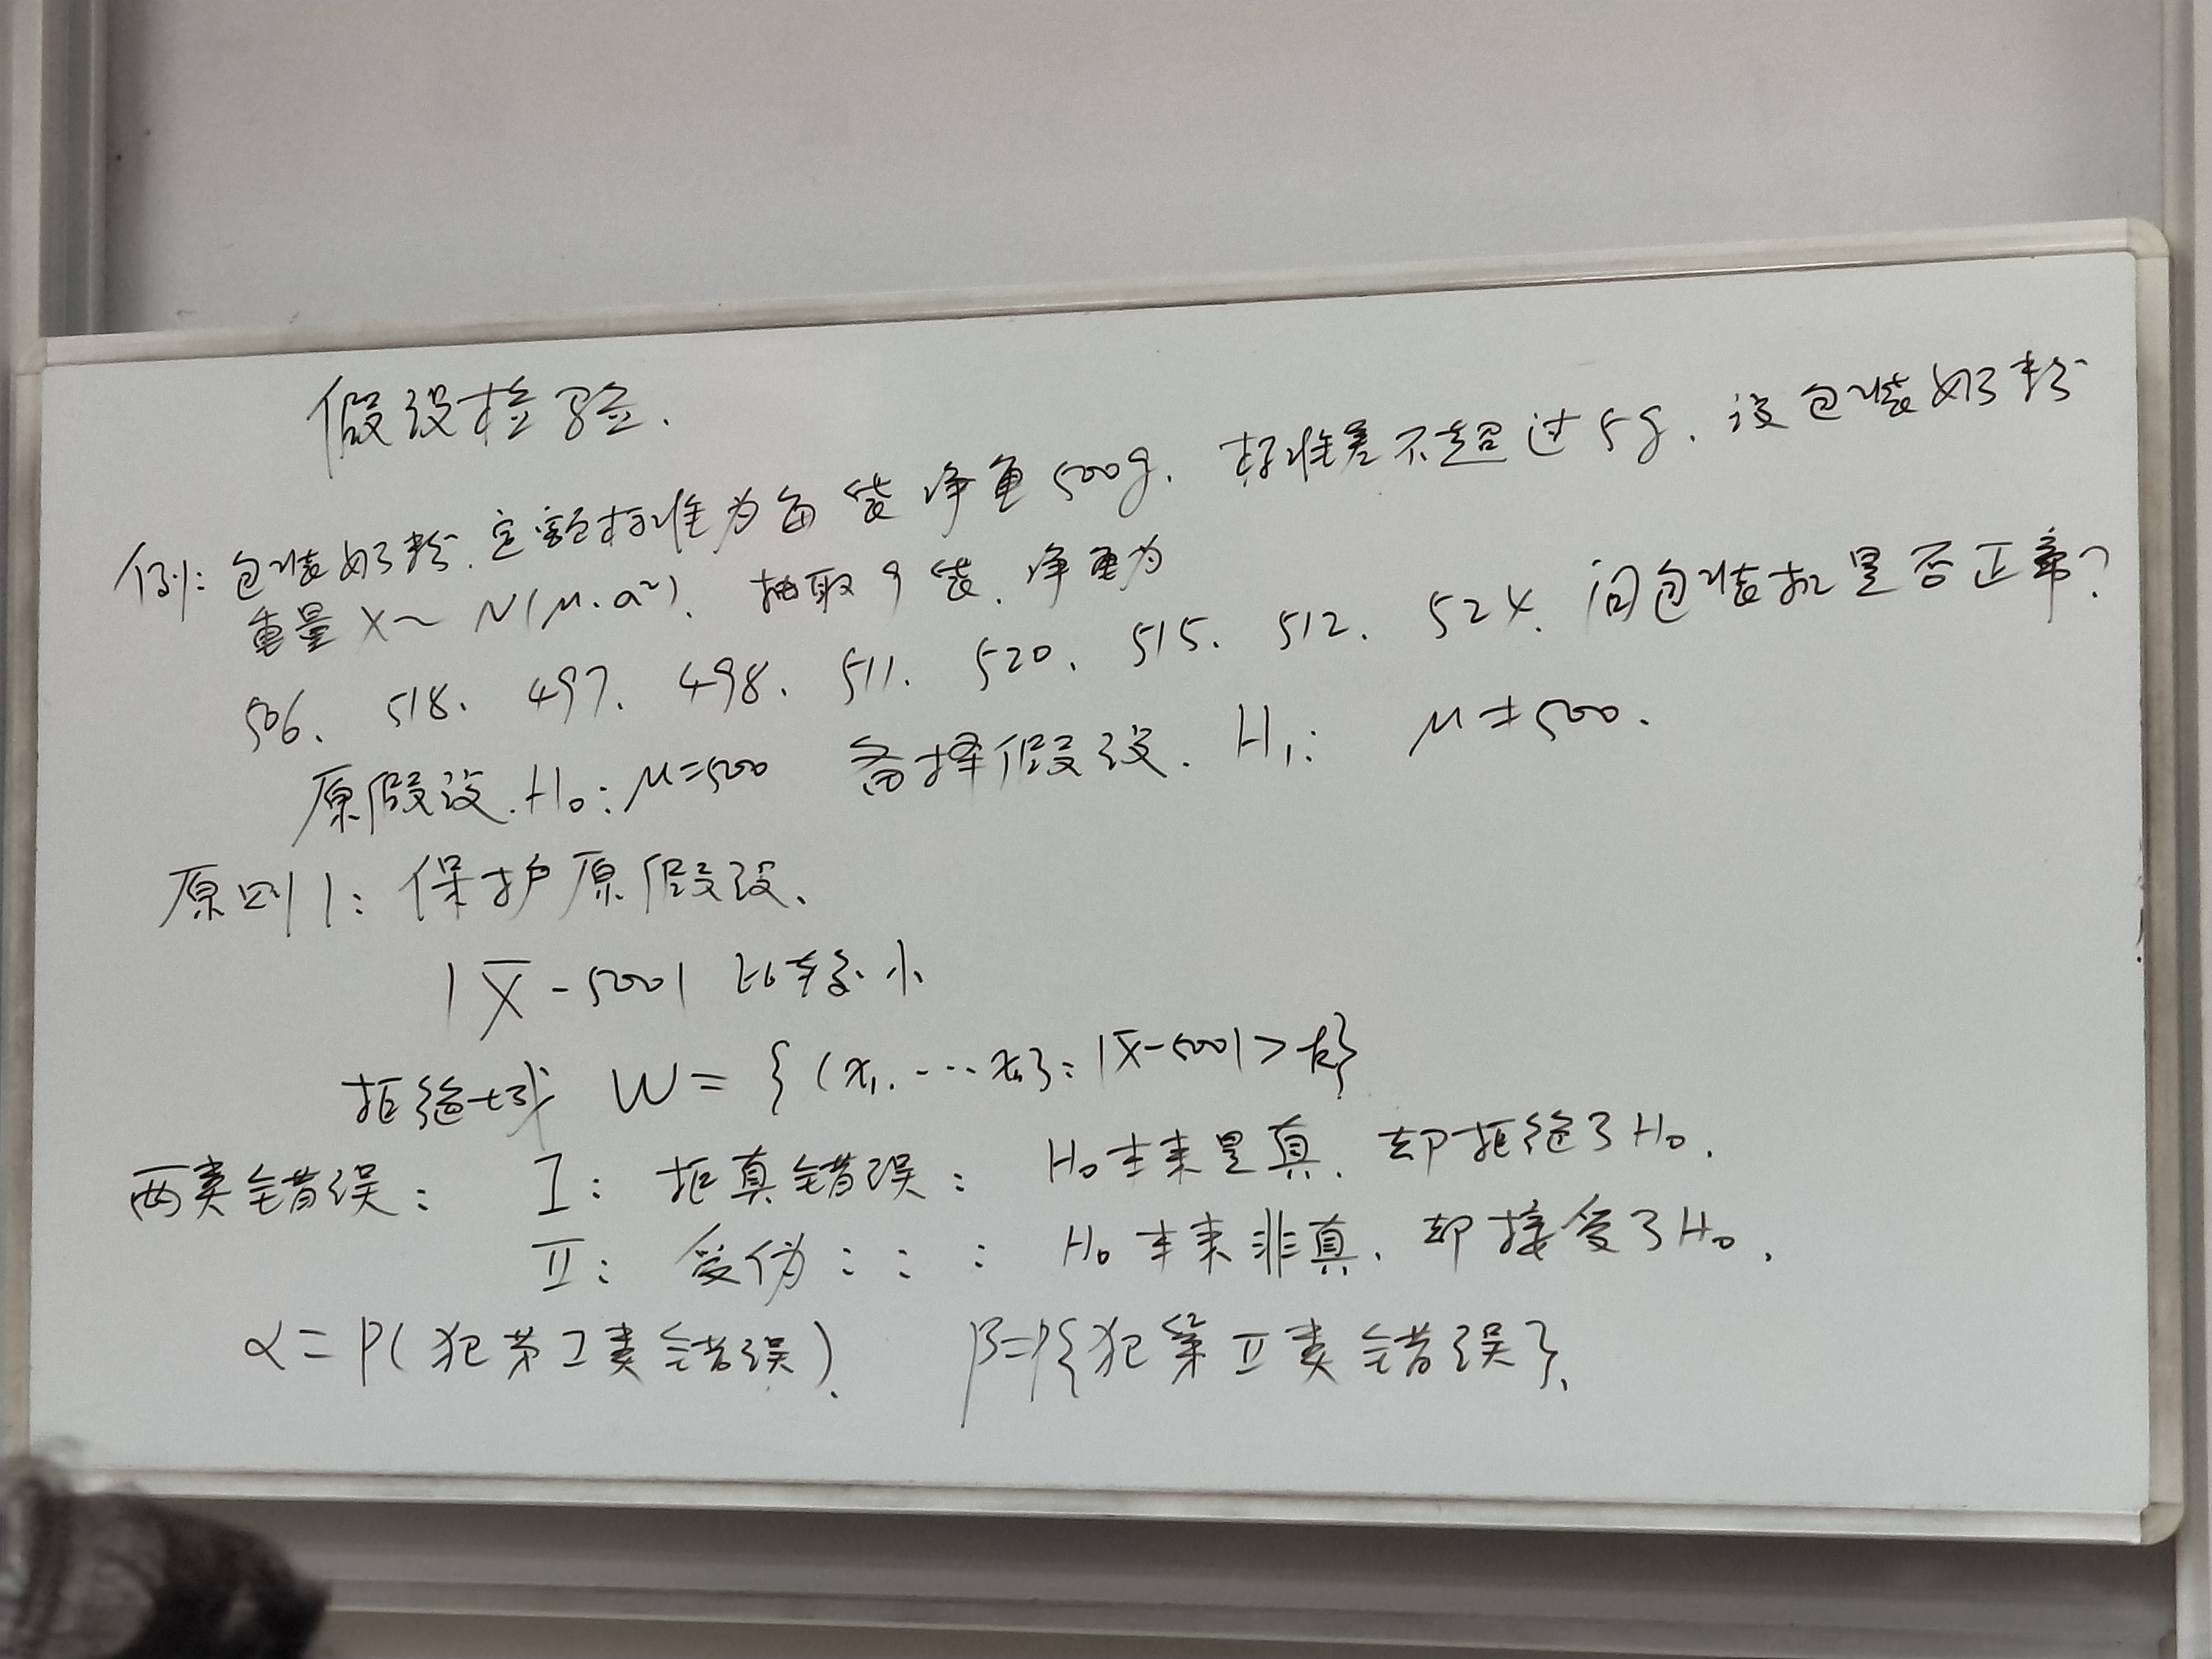 假设检验.
例: 包装奶粉. 定额标准为每袋净重500g. 标准差不超过5g. 设包装奶粉
重量 X~N(μ.σ²). 抽取9袋. 净重为
506、518. 497. 498. 511. 520. 515. 512. 524. 问包装机是否正常?
原假设. H₀: μ=500 备择假设. H₁: μ≠500.
原则1: 保护原假设.
|X̄-500| 比较小
拒绝域 W={(x₁.…xₙ): |X̄-500|>k}
两类错误: I: 拒真错误: H₀本来是真. 却拒绝了H₀.
II: 受伪::: H₀本来非真. 却接受了H₀.
α=P(犯第I类错误). β=P{犯第II类错误}.